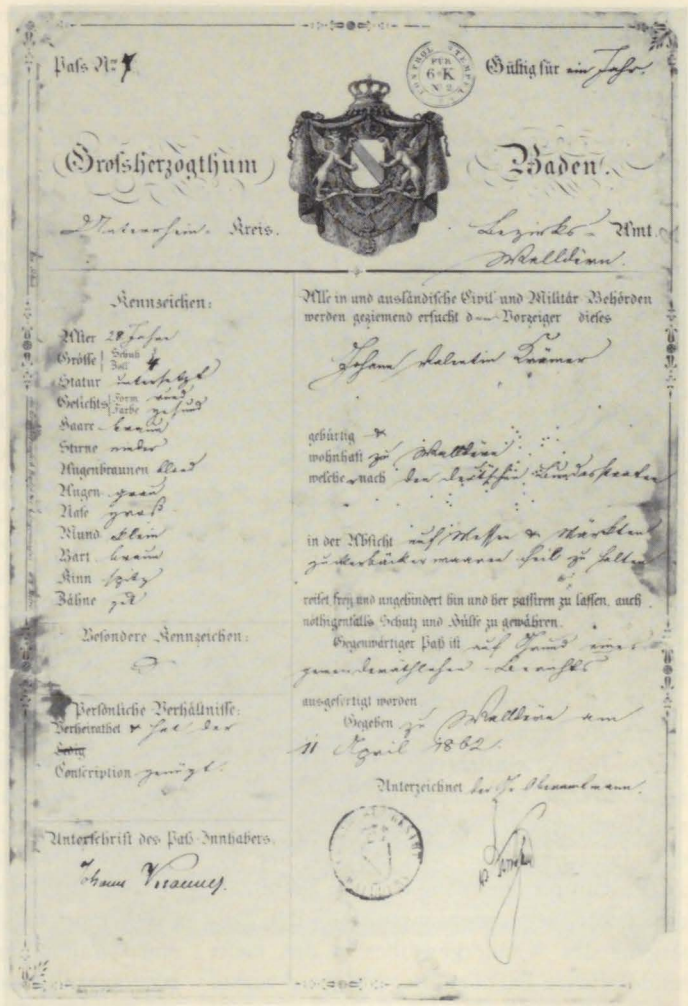 Pass No 7
KONTROL STEMPEL
FÜR
6 K
No 2
Gültig für ein Jahr.
Grossherzogthum Baden.
Unterrhein- Kreis.
Bezirks- Amt.
Walldürn.
Kennzeichen:
Alter 28 Jahre
Grösse Schuh
Zoll 4
Statur untersetzt
Gesichts Form rund
Farbe gesund
Haare braun
Stirne nieder
Augenbraunen blond
Augen grau
Nase groß
Mund klein
Bart braun
Kinn spitz
Zähne gut
Besondere Kennzeichen:
Persönliche Verhältnisse:
Verheirathet & hat der
Ledig
Conscription genügt.
Unterschrift des Paß-Innhabers.
Alle in und ausländische Civil und Militär Behörden
werden geziemend ersucht den Vorzeiger dieses
Johann Valentin Krämer
gebürtig &
wohnhaft zu Walldürn
welcher nach den deutschen Bundesstaaten
in der Absicht auf Messen & Märkten
Zuckerbäckerwaaren feil zu halten
reiset frey und ungehindert hin und her passiren zu lassen, auch
nöthigenfalls Schutz und Hülfe zu gewähren.
Gegenwärtiger Paß ist auf Grund eines
gemeinderäthlichen Berichts
ausgefertigt worden
Gegeben zu Walldürn am
11 April 1862.
Unterzeichnet der Gr. Oberamtmann.